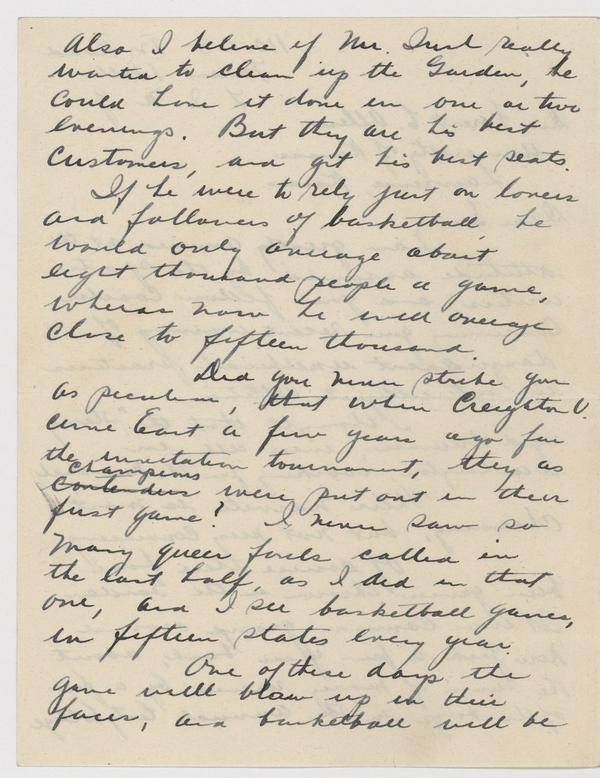 Also I believe if Mr. Irish really
wanted to clean up the Garden, he
could have it done in one or two
evenings. But they are his best
customers, and get his best seats.
If he were to rely just on lovers
and followers of basketball, he
would only average about
eight thousand people a game,
wheras now he will average
close to fifteen thousand.
Did you never strike you
as peculiar, that when Creighton U.
came East a few years ago for
the invitation tournament, they as
champions
contenders were put out in their
first game? I never saw so
many queer fouls called in
the last half, as I did in that
one, and I see basketball games,
in fifteen states every year.
One of these days the
game will blow up in their
faces, and basketball will be